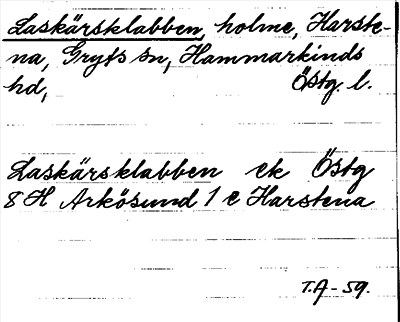 Laskärsklabben, holme, Harste-
na, Gryts sn, Hammarkinds
hd, Östg. l.
Laskärsklabben ek Östg
8 H Arkösund 1 e Harstena
T.A-59.